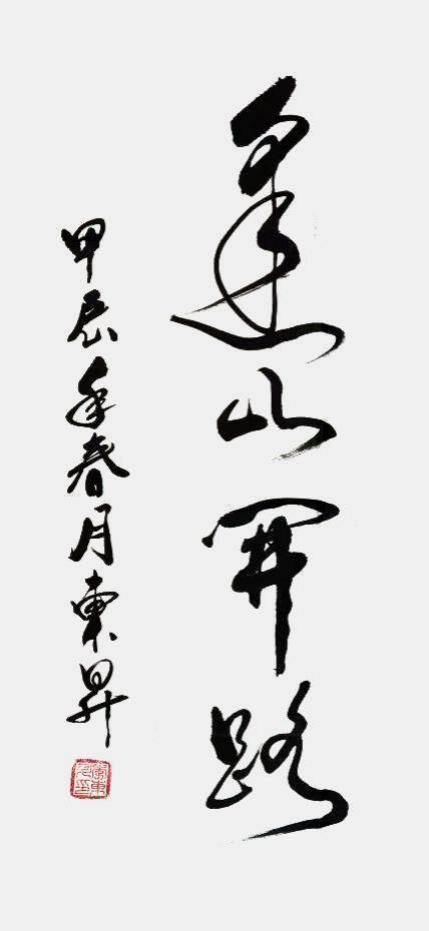 逢山開路
甲辰年春月東昇